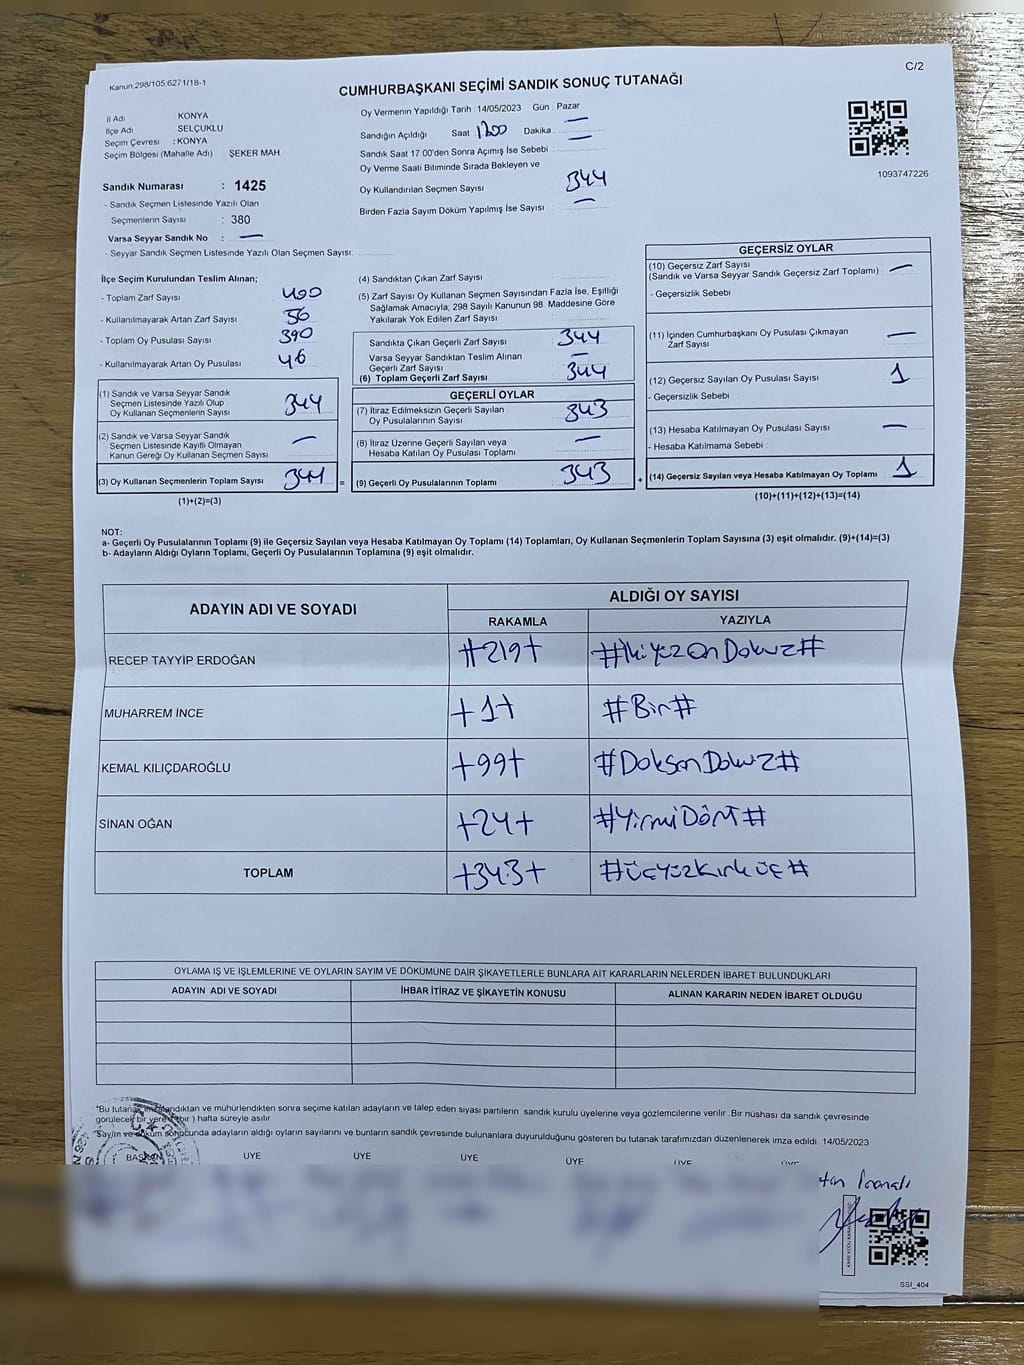 Kanun.298/105,6271/18-1
C/2
CUMHURBAŞKANI SEÇİMİ SANDIK SONUÇ TUTANAĞI
İl Adı KONYA
İlçe Adı SELÇUKLU
Seçim Çevresi : KONYA
Seçim Bölgesi (Mahalle Adı) ŞEKER MAH
Sandık Numarası : 1425
- Sandık Seçmen Listesinde Yazılı Olan
Seçmenlerin Sayısı : 380
Varsa Seyyar Sandık No : —
- Seyyar Sandık Seçmen Listesinde Yazılı Olan Seçmen Sayısı:
Oy Vermenin Yapıldığı Tarih :14/05/2023 Gün : Pazar
Sandığın Açıldığı Saat : 1700 Dakika : —
Sandık Saat 17.00'den Sonra Açımış İse Sebebi : —
Oy Verme Saati Bitiminde Sırada Bekleyen ve
Oy Kullandırılan Seçmen Sayısı 344
Birden Fazla Sayım Döküm Yapılmış İse Sayısı : —
1093747226
İlçe Seçim Kurulundan Teslim Alınan;
- Toplam Zarf Sayısı 400
- Kullanılmayarak Artan Zarf Sayısı 56
- Toplam Oy Pusulası Sayısı 390
- Kullanılmayarak Artan Oy Pusulası 46
(1) Sandık ve Varsa Seyyar Sandık
Seçmen Listesinde Yazılı Olup
Oy Kullanan Seçmenlerin Sayısı 344
(2) Sandık ve Varsa Seyyar Sandık
Seçmen Listesinde Kayıtlı Olmayan
Kanun Gereği Oy Kullanan Seçmen Sayısı —
(3) Oy Kullanan Seçmenlerin Toplam Sayısı 344 =
(1)+(2)=(3)
(4) Sandıktan Çıkan Zarf Sayısı
(5) Zarf Sayısı Oy Kullanan Seçmen Sayısından Fazla İse, Eşitliği
Sağlamak Amacıyla, 298 Sayılı Kanunun 98. Maddesine Göre
Yakılarak Yok Edilen Zarf Sayısı
Sandıkta Çıkan Geçerli Zarf Sayısı 344
Varsa Seyyar Sandıktan Teslim Alınan
Geçerli Zarf Sayısı —
(6) Toplam Geçerli Zarf Sayısı 344
GEÇERLİ OYLAR
(7) İtiraz Edilmeksizin Geçerli Sayılan
Oy Pusulalarının Sayısı 343
(8) İtiraz Üzerine Geçerli Sayılan veya
Hesaba Katılan Oy Pusulası Toplamı —
(9) Geçerli Oy Pusulalarının Toplamı 343 +
GEÇERSİZ OYLAR
(10) Geçersiz Zarf Sayısı
(Sandık ve Varsa Seyyar Sandık Geçersiz Zarf Toplamı) —
- Geçersizlik Sebebi
(11) İçinden Cumhurbaşkanı Oy Pusulası Çıkmayan
Zarf Sayısı —
(12) Geçersiz Sayılan Oy Pusulası Sayısı 1
- Geçersizlik Sebebi
(13) Hesaba Katılmayan Oy Pusulası Sayısı —
- Hesaba Katılmama Sebebi :
(14) Geçersiz Sayılan veya Hesaba Katılmayan Oy Toplamı 1
(10)+(11)+(12)+(13)=(14)
NOT:
a- Geçerli Oy Pusulalarının Toplamı (9) ile Geçersiz Sayılan veya Hesaba Katılmayan Oy Toplamı (14) Toplamları, Oy Kullanan Seçmenlerin Toplam Sayısına (3) eşit olmalıdır. (9)+(14)=(3)
b- Adayların Aldığı Oyların Toplamı, Geçerli Oy Pusulalarının Toplamına (9) eşit olmalıdır.
ADAYIN ADI VE SOYADI ALDIĞI OY SAYISI
RAKAMLA YAZIYLA
RECEP TAYYİP ERDOĞAN #219+ #İkiyüzOnDokuz#
MUHARREM İNCE +1+ #Bir#
KEMAL KILIÇDAROĞLU +99+ #DoksanDokuz#
SİNAN OĞAN +24+ #YirmiDört#
TOPLAM +343+ #ÜçYüzKırküç#
OYLAMA İŞ VE İŞLEMLERİNE VE OYLARIN SAYIM VE DÖKÜMÜNE DAİR ŞİKAYETLERLE BUNLARA AİT KARARLARIN NELERDEN İBARET BULUNDUKLARI
ADAYIN ADI VE SOYADI İHBAR İTİRAZ VE ŞİKAYETİN KONUSU ALINAN KARARIN NEDEN İBARET OLDUĞU
*Bu tutanak imzalandıktan ve mühürlendikten sonra seçime katılan adayların ve talep eden siyasi partilerin sandık kurulu üyelerine veya gözlemcilerine verilir. Bir nüshası da sandık çevresinde
görülecek bir yere (bir) hafta süreyle asılır.
*Sayım ve döküm sonucunda adayların aldığı oyların sayılarını ve bunların sandık çevresinde bulunanlara duyurulduğunu gösteren bu tutanak tarafımızdan düzenlenerek imza edildi. 14/05/2023
BAŞKAN ÜYE ÜYE ÜYE ÜYE ÜYE ÜYE
SSI_404